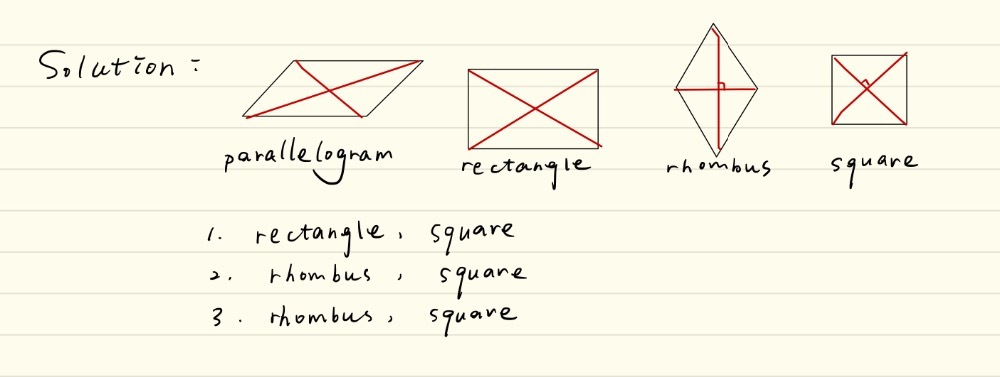 Solution:
parallelogram rectangle rhombus square
1. rectangle, square
2. rhombus, square
3. rhombus, square